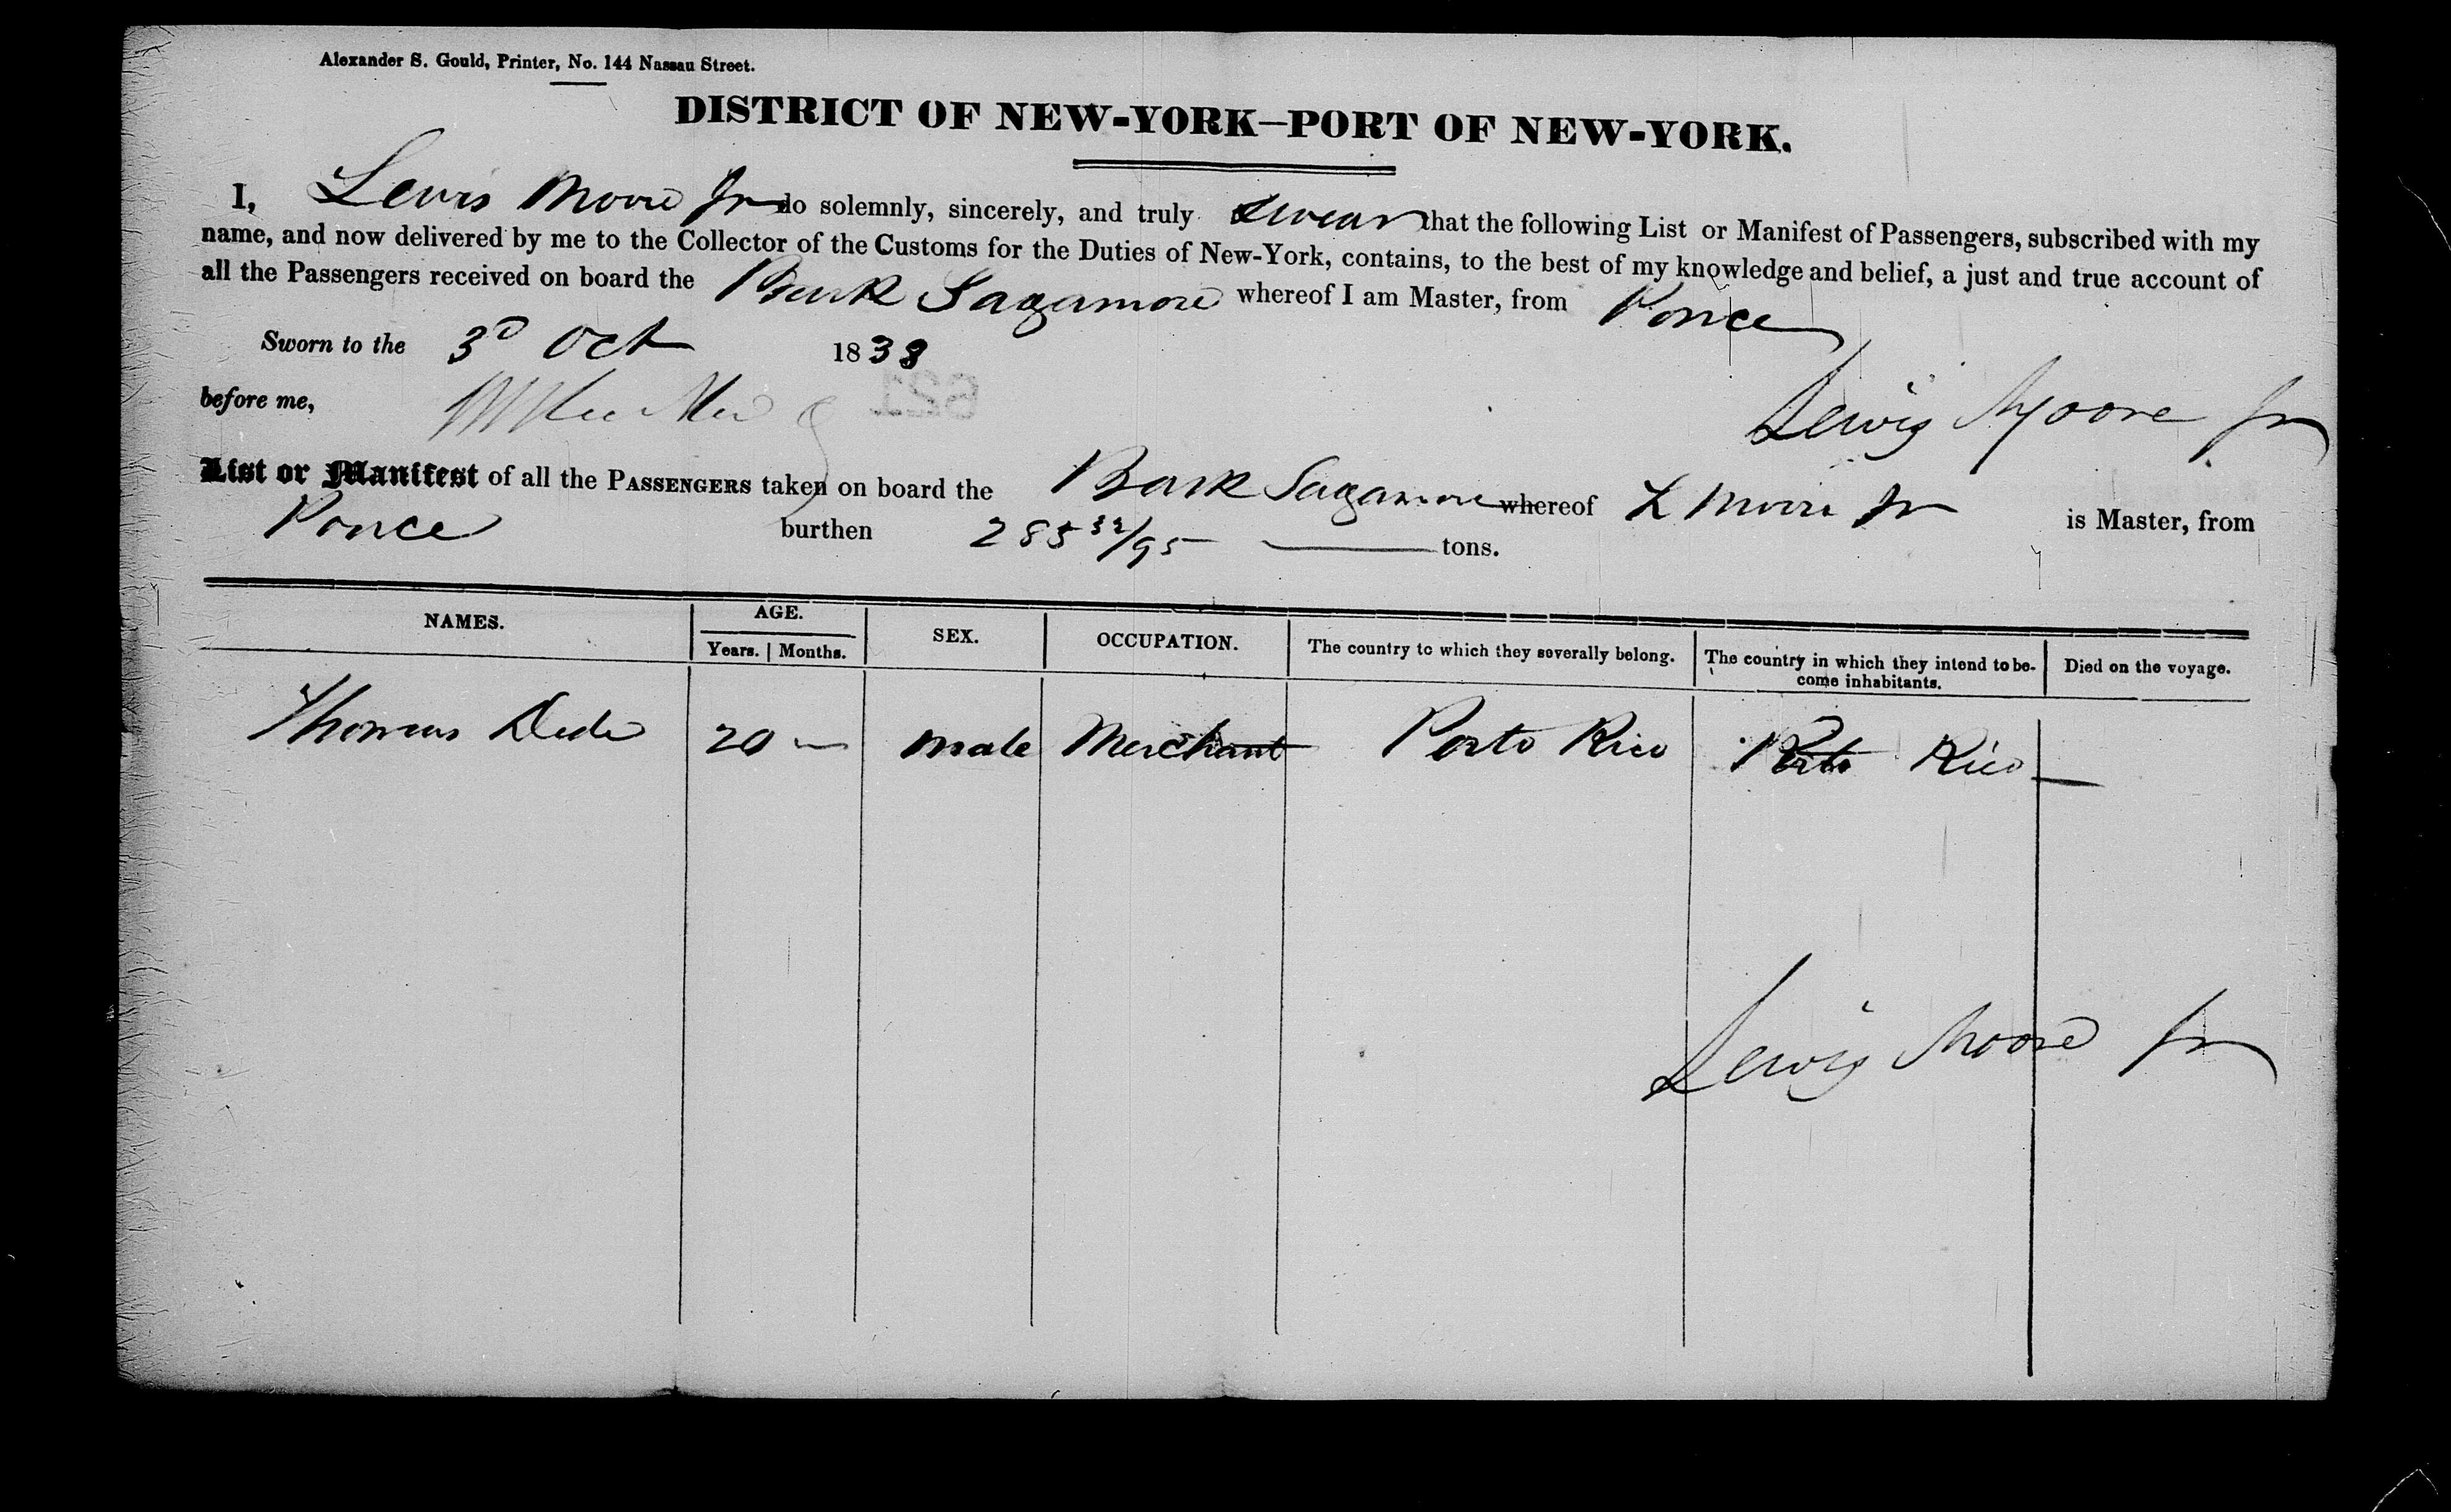 Alexander S. Gould, Printer, No. 144 Nassau Street.
DISTRICT OF NEW-YORK—PORT OF NEW-YORK.
I, Lewis Moore Jr do solemnly, sincerely, and truly swear that the following List or Manifest of Passengers, subscribed with my
name, and now delivered by me to the Collector of the Customs for the Duties of New-York, contains, to the best of my knowledge and belief, a just and true account of
all the Passengers received on board the Bark Sagamore whereof I am Master, from Ponce
Sworn to the 3d Oct 1838
before me,
621
Lewis Moore Jr
List or Manifest of all the PASSENGERS taken on board the Bark Sagamore whereof L Moore Jr is Master, from
Ponce burthen 285 32/95 tons.
NAMES. AGE. SEX. OCCUPATION. The country to which they severally belong. The country in which they intend to be- Died on the voyage.
Years. Months. come inhabitants.
Thomas 20 male Merchant Porto Rico Porto Rico
Lewis Moore Jr